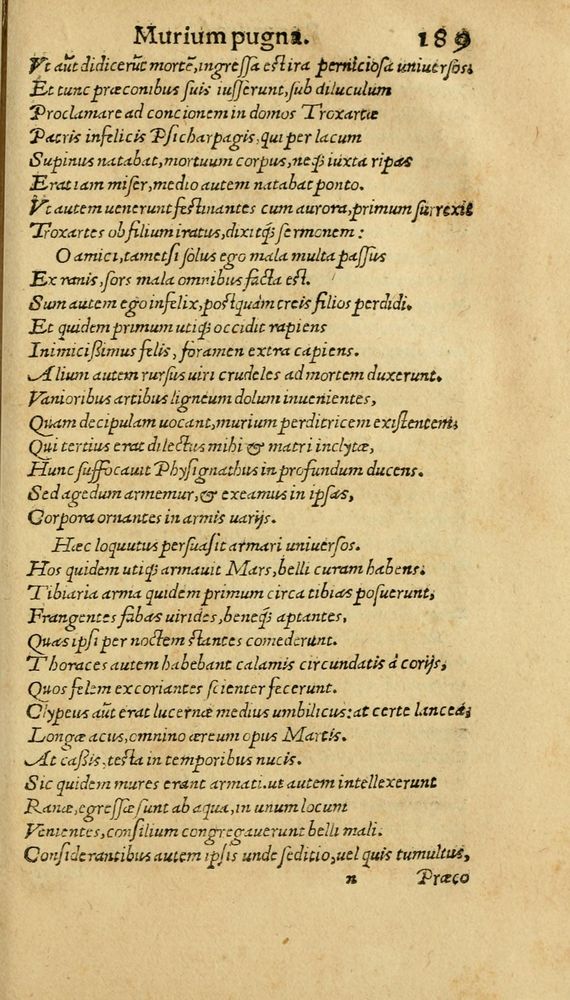 Murium pugna. 189
Vt aũt didicerũt mortẽ, ingressa est ira perniciosa uniuersos;
Et tunc præconibus suis iusserunt, sub diluculum
Proclamare ad concionem in domos Troxartæ
Patris infelicis Psicharpagis, qui per lacum
Supinus natabat, mortuum corpus, neq; iuxta ripas
Erat iam miser, medio autem natabat ponto.
Vt autem uenerunt festinantes cum aurora, primum surrexit
Troxartes ob filium iratus, dixitq; sermonem:
O amici, tametsi solus ego mala multa passus
Ex ranis, sors mala omnibus facta est.
Sum autem ego infelix, postquàm treis filios perdidi.
Et quidem primum utiq; occidit rapiens
Inimicissimus felis, foramen extra capiens.
Alium autem rursus uiri crudeles ad mortem duxerunt.
Vanioribus artibus ligneum dolum inuenientes,
Quam decipulam uocant, murium perditricem existentem;
Qui tertius erat dilectus mihi & matri inclytæ,
Hunc suffocauit Physignathus in profundum ducens.
Sed agedum armemur, & exeamus in ipsas,
Corpora ornantes in armis uarijs.
Hæc loquutus persuasit armari uniuersos.
Hos quidem utiq; armauit Mars, belli curam habens:
Tibiaria arma quidem primum circa tibias posuerunt,
Frangentes fabas uirides, beneq; aptantes,
Quas ipsi per noctem stantes comederunt.
Thoraces autem habebant calamis circundatis à corijs,
Quos felem excoriantes scienter fecerunt.
Clypeus aũt erat lucernæ medius umbilicus: at certe lancea;
Longæ acus, omnino æreum opus Martis.
At cassis, testa in temporibus nucis.
Sic quidem mures erant armati. ut autem intellexerunt
Ranæ, egressæ sunt ab aqua, in unum locum
Venientes, consilium congregauerunt belli mali.
Considerantibus autem ipsis unde seditio, uel quis tumultus,
n Præco